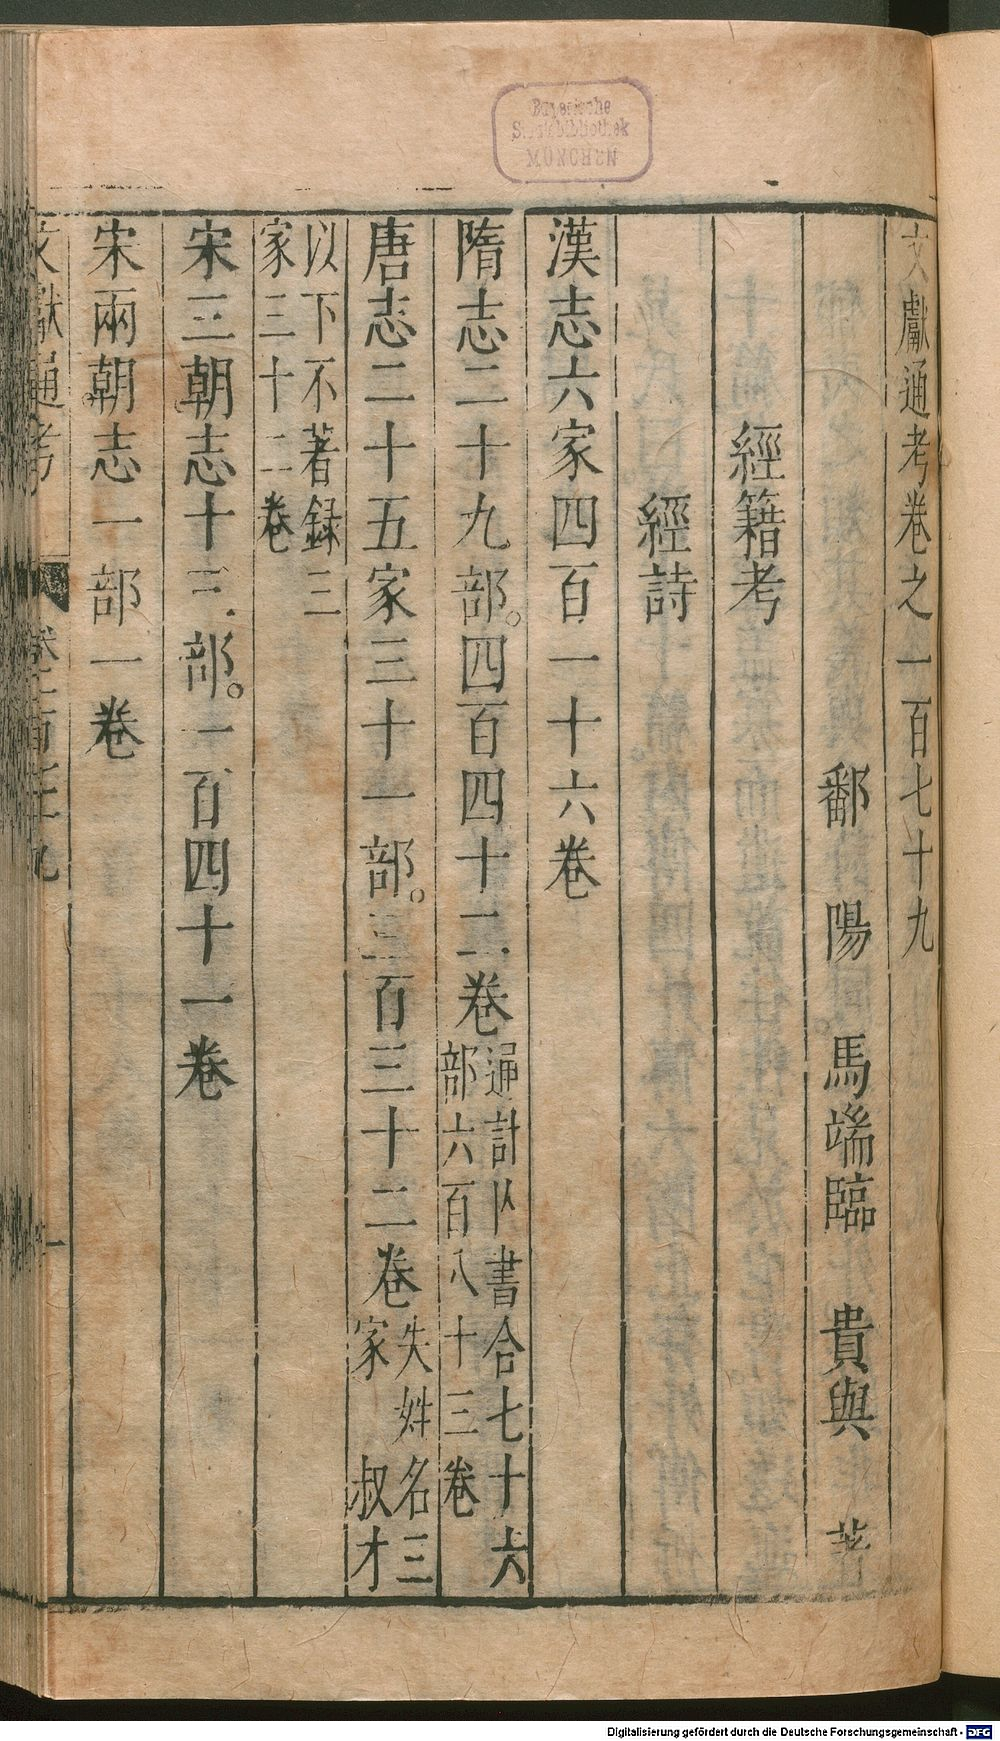 Bayerische
Staatsbibliothek
MÜNCHEN
文獻通考卷之一百七十九
鄱陽 馬端臨 貴與 著
經籍考
經詩
漢志六家四百一十六卷
隋志二十九部。四百四十二卷通計亾書合七十六部六百八十三卷
唐志二十五家三十一部。三百三十二卷失姓名三家 叔才
以下不著録三家三十二卷
宋三朝志十三部。一百四十一卷
宋兩朝志一部一卷
文獻通考 卷一百七十九 一
Digitalisierung gefördert durch die Deutsche Forschungsgemeinschaft - DFG